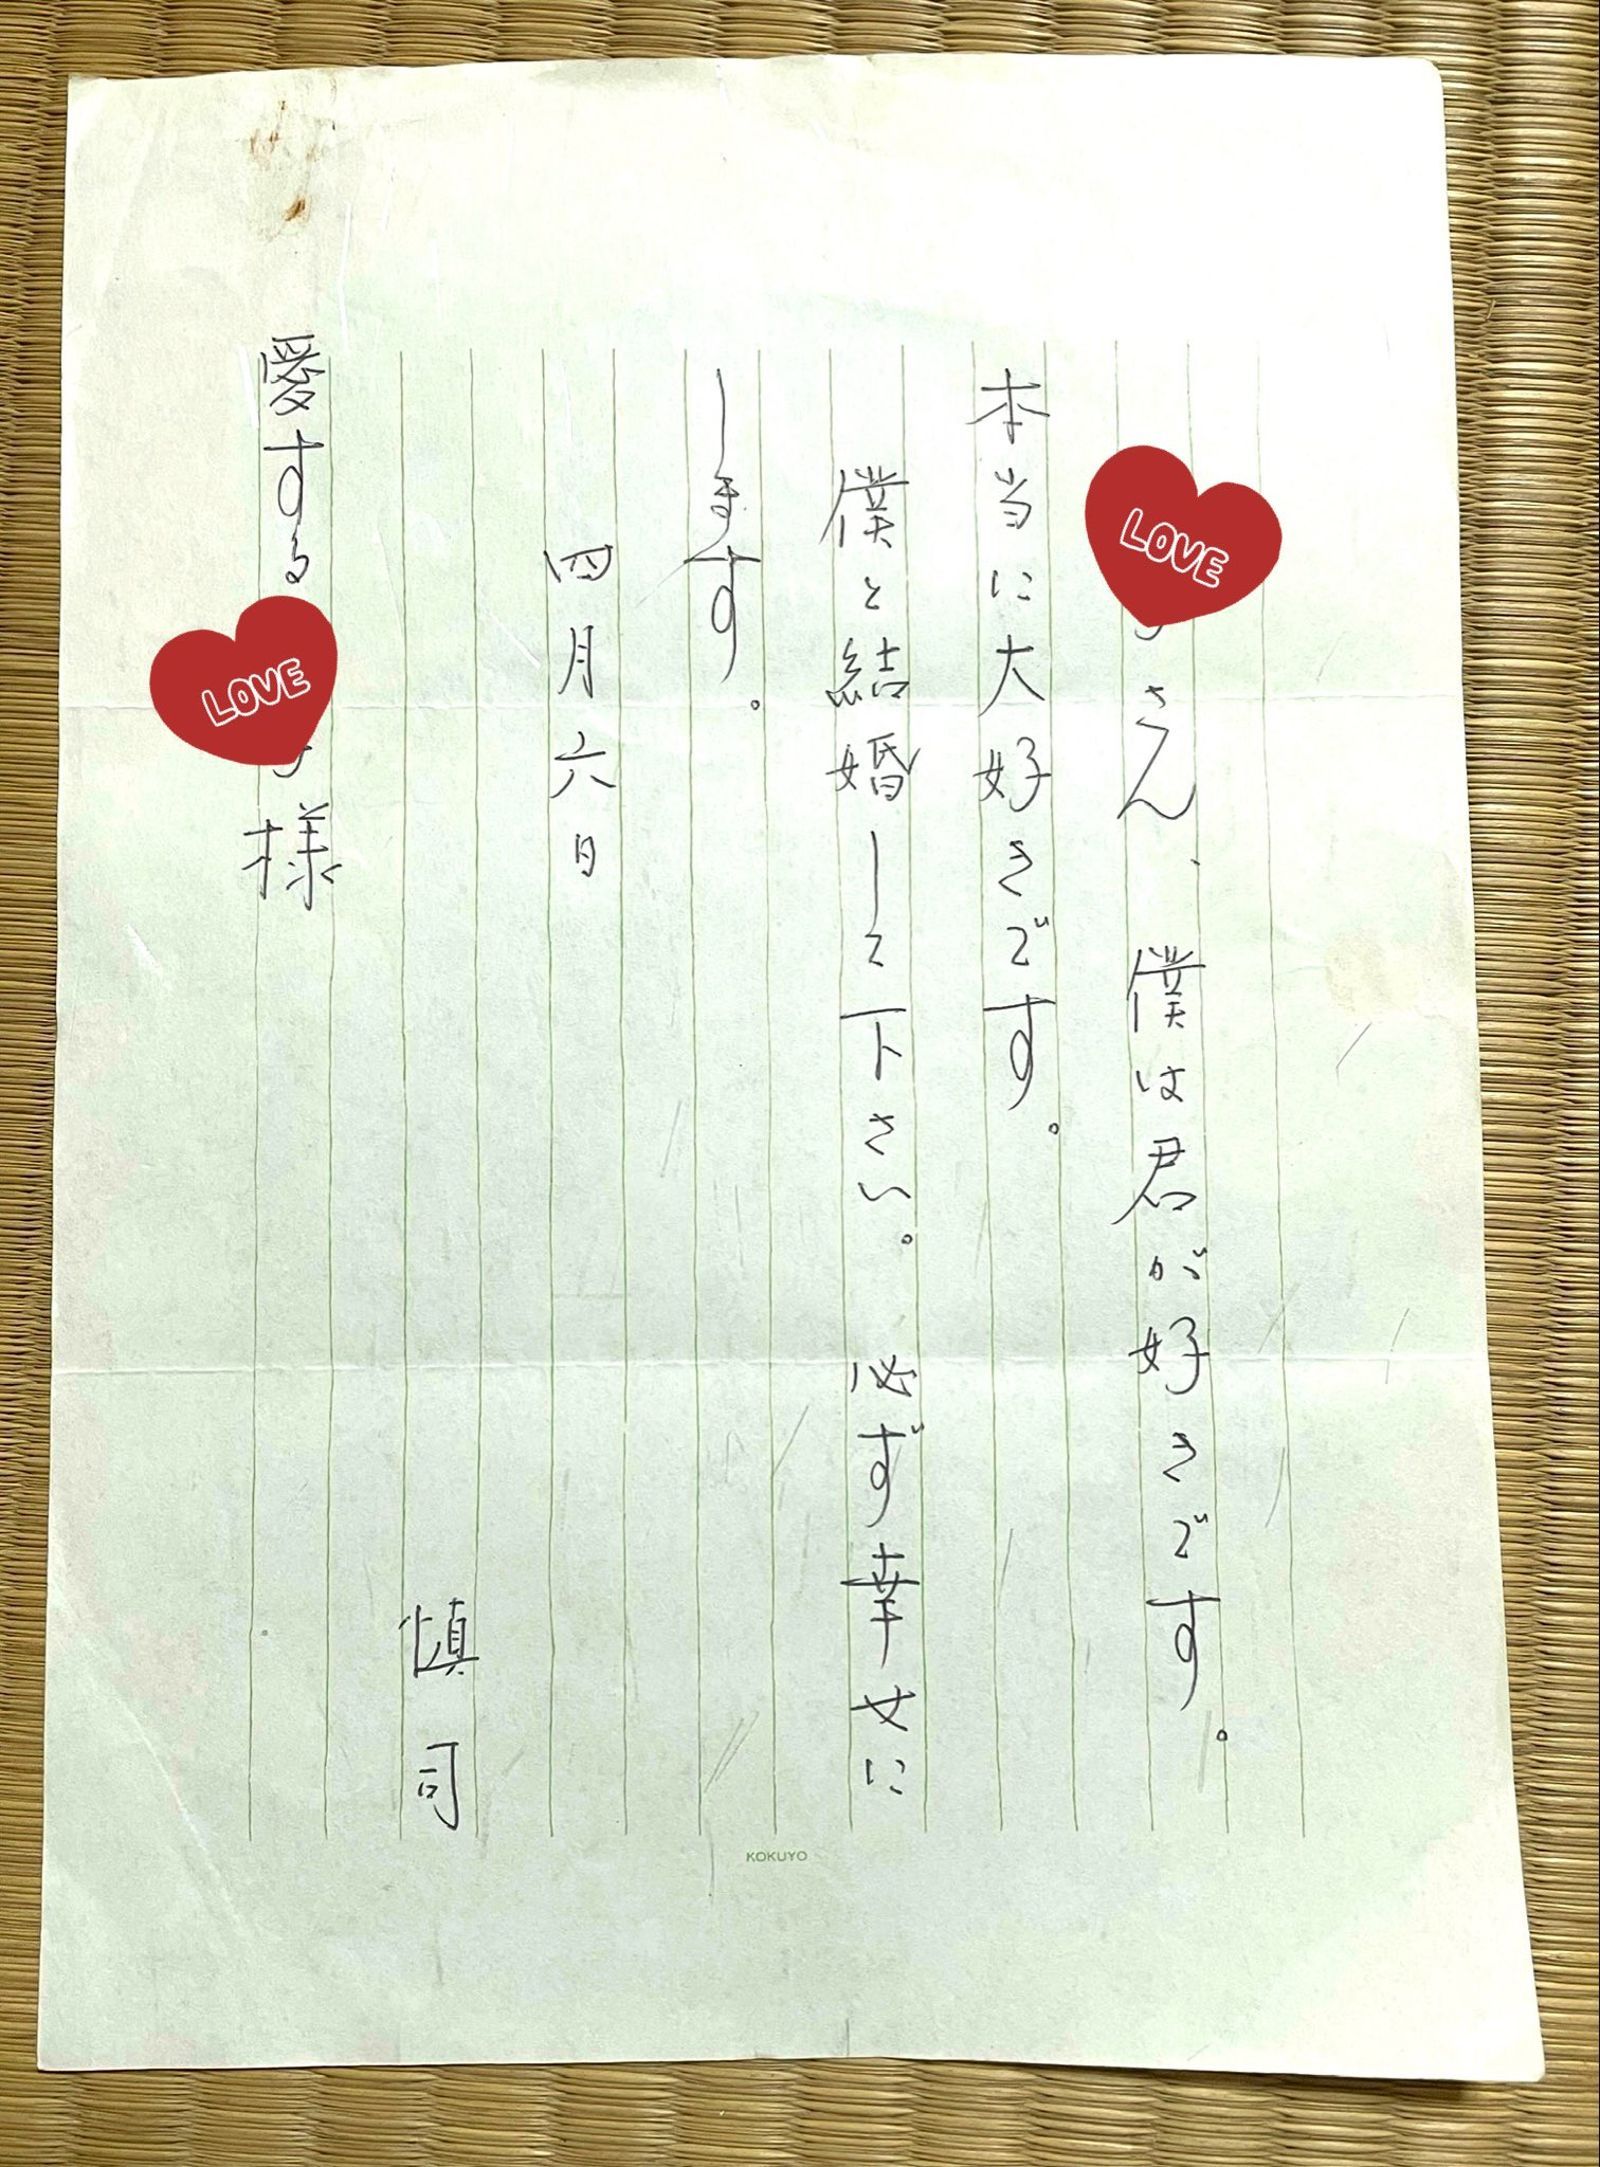 LOVE
さん、僕は君が好きです。
本当に大好きです。
僕と結婚して下さい。必ず幸せに
します。
四月六日
慎司
愛する
LOVE
様
KOKUYO